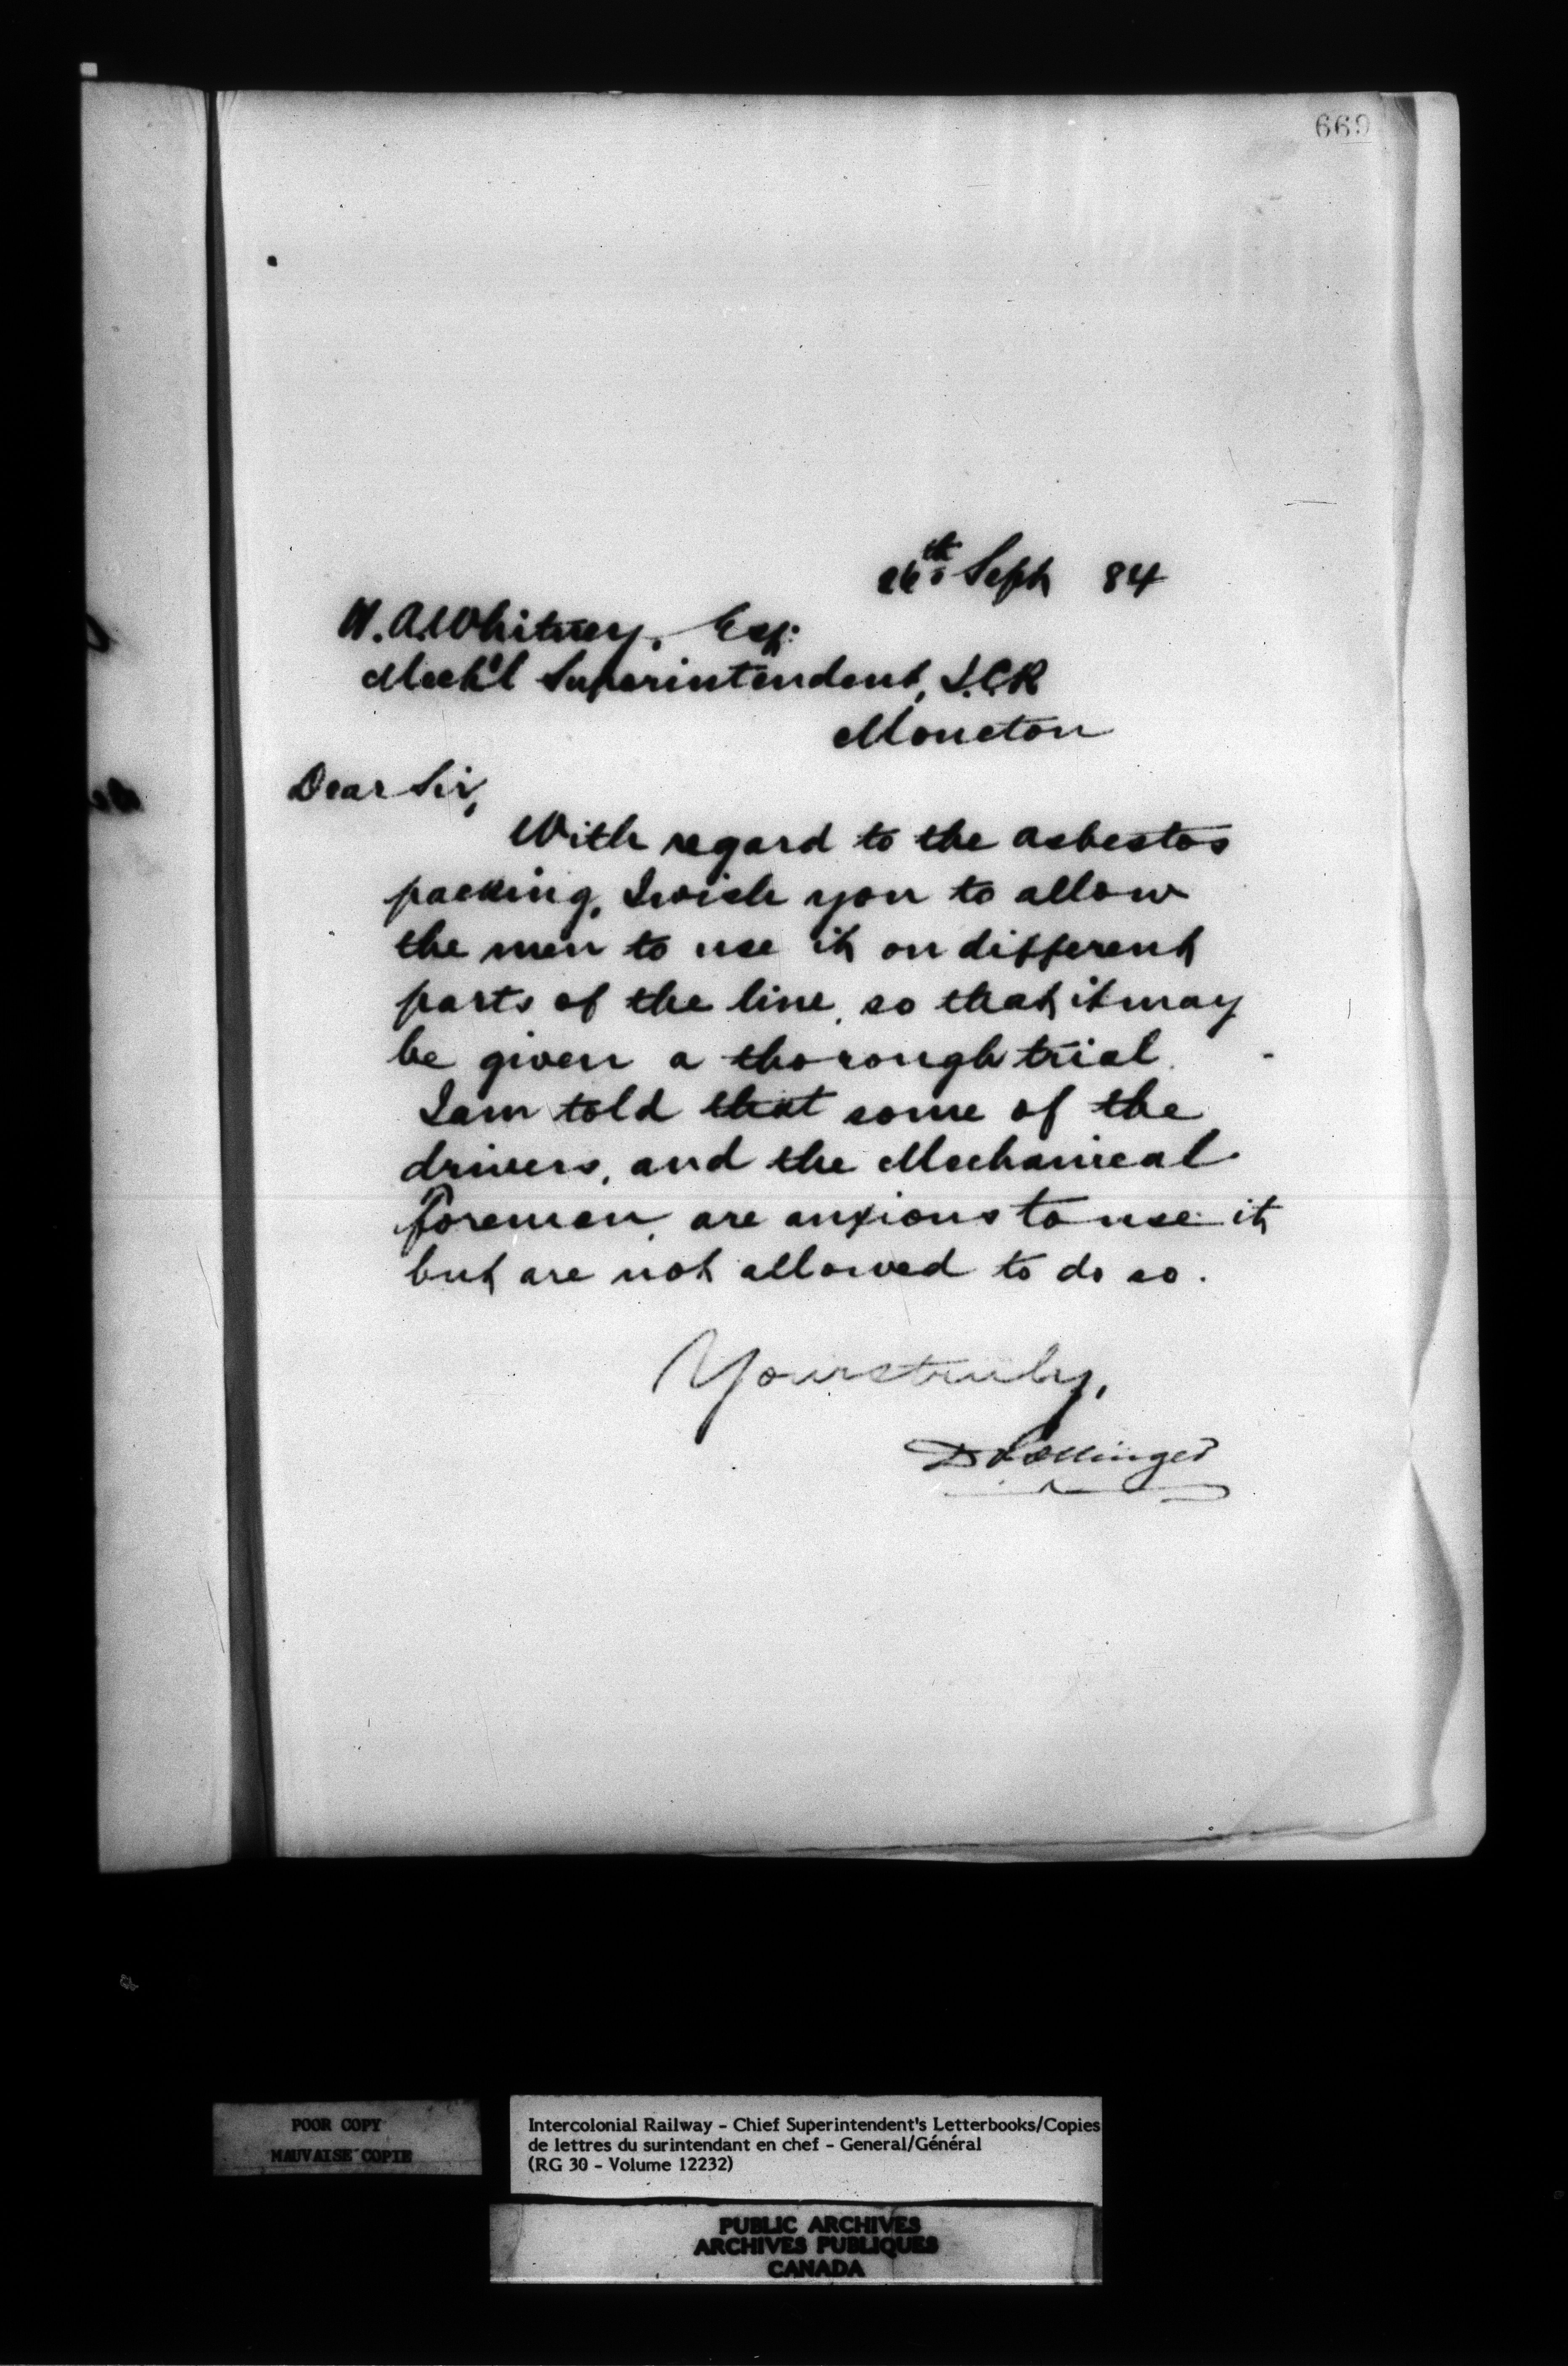 669
26th Sept 84
H. A. Whitney, Esq:
Mech'l Superintendent, I.C.R
Moncton
Dear Sir,
With regard to the asbestos
packing, I wish you to allow
the men to use it on different
parts of the line, so that it may
be given a thorough trial.
I am told that some of the
drivers, and the Mechanical
Foremen, are anxious to use it
but are not allowed to do so.
Yours truly,
D Pottinger
POOR COPY
MAUVAISE COPIE
Intercolonial Railway - Chief Superintendent's Letterbooks/Copies
de lettres du surintendant en chef - General/Général
(RG 30 - Volume 12232)
PUBLIC ARCHIVES
ARCHIVES PUBLIQUES
CANADA